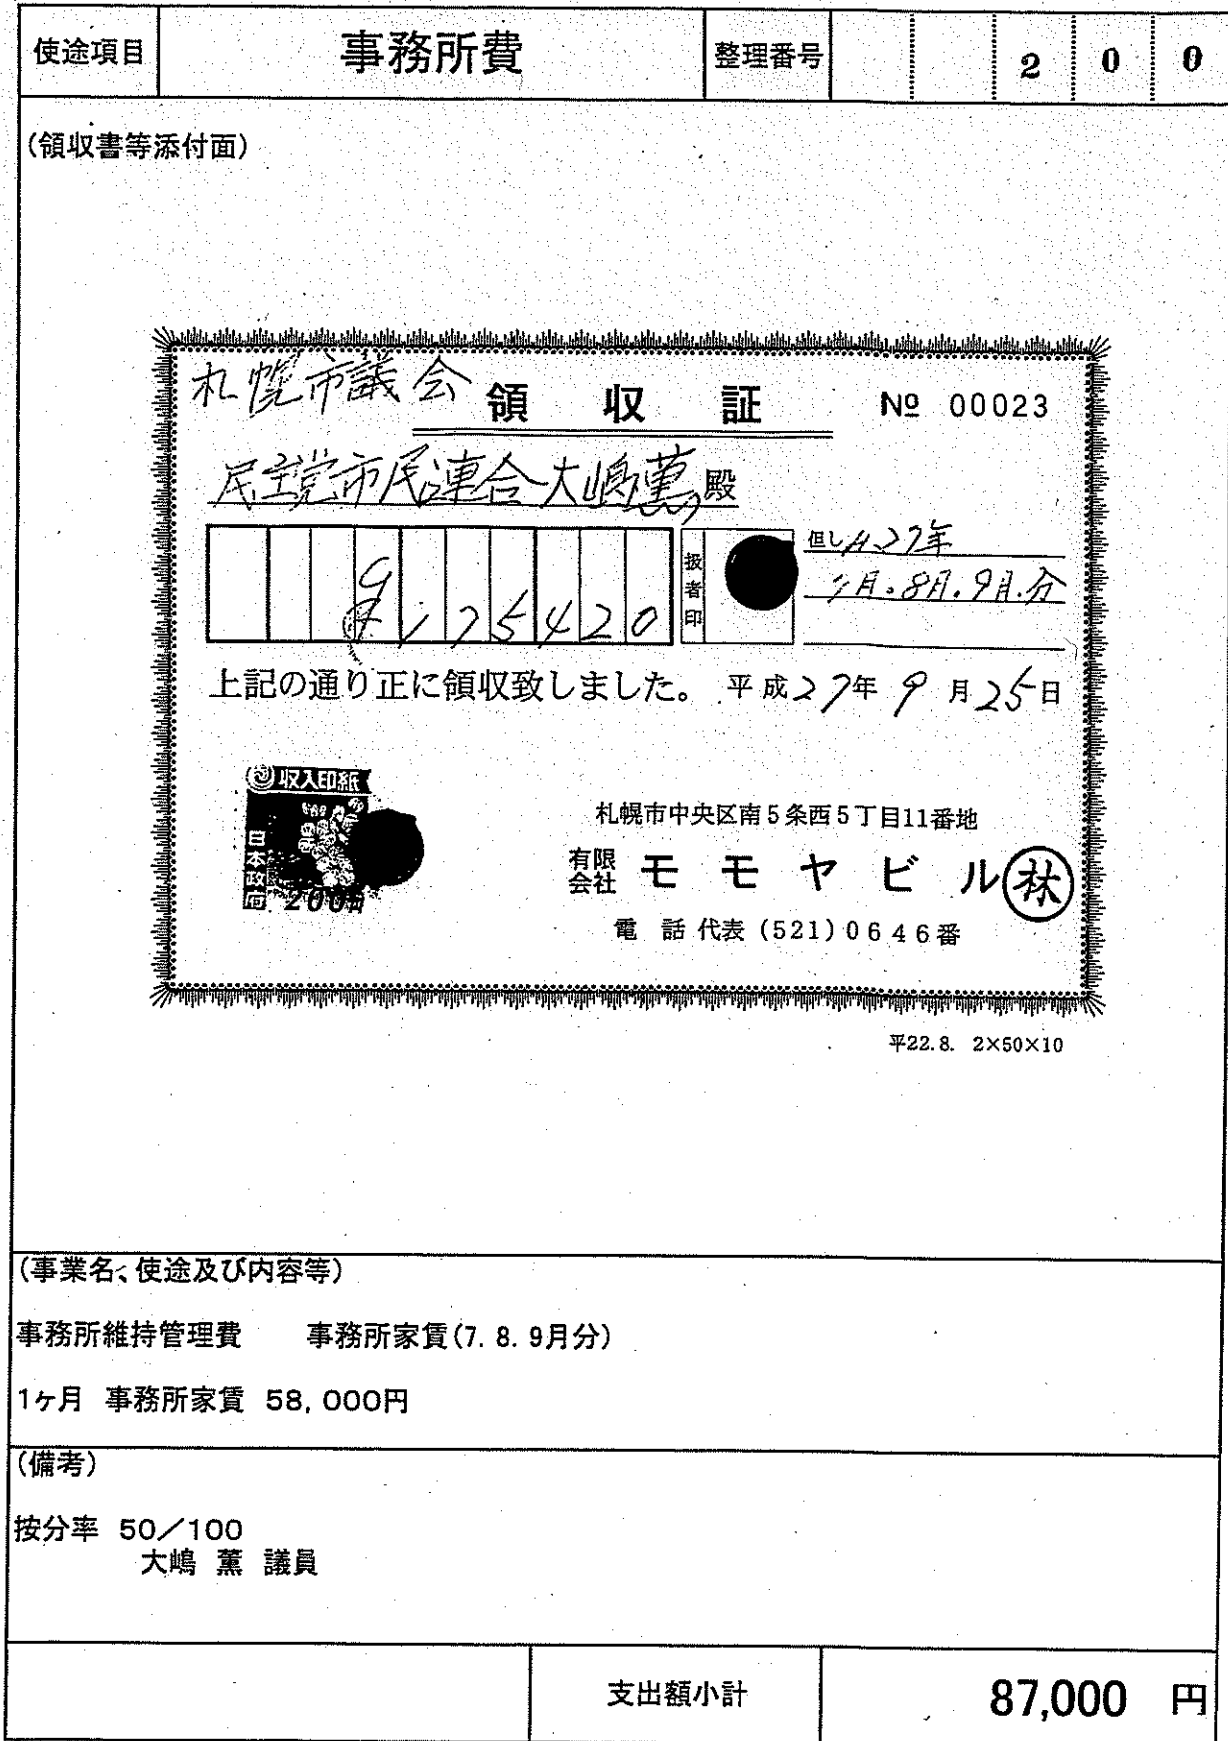 使途項目 事務所費 整理番号 2 0 0
(領収書等添付面)
札幌市議会
領収証 № 00023
民主党市民連合大嶋薫殿
扱者印
175420
但しH.27年
7月.8月.9月.分
上記の通り正に領収致しました。 平成27年9月25日
収入印紙
日本政府
200円
札幌市中央区南5条西5丁目11番地
有限会社 モモヤビル 林
電話代表(521)0646番
平22.8. 2×50×10
(事業名、使途及び内容等)
事務所維持管理費 事務所家賃(7.8.9月分)
1ヶ月 事務所家賃 58,000円
(備考)
按分率 50/100
大嶋 薫 議員
支出額小計 87,000 円